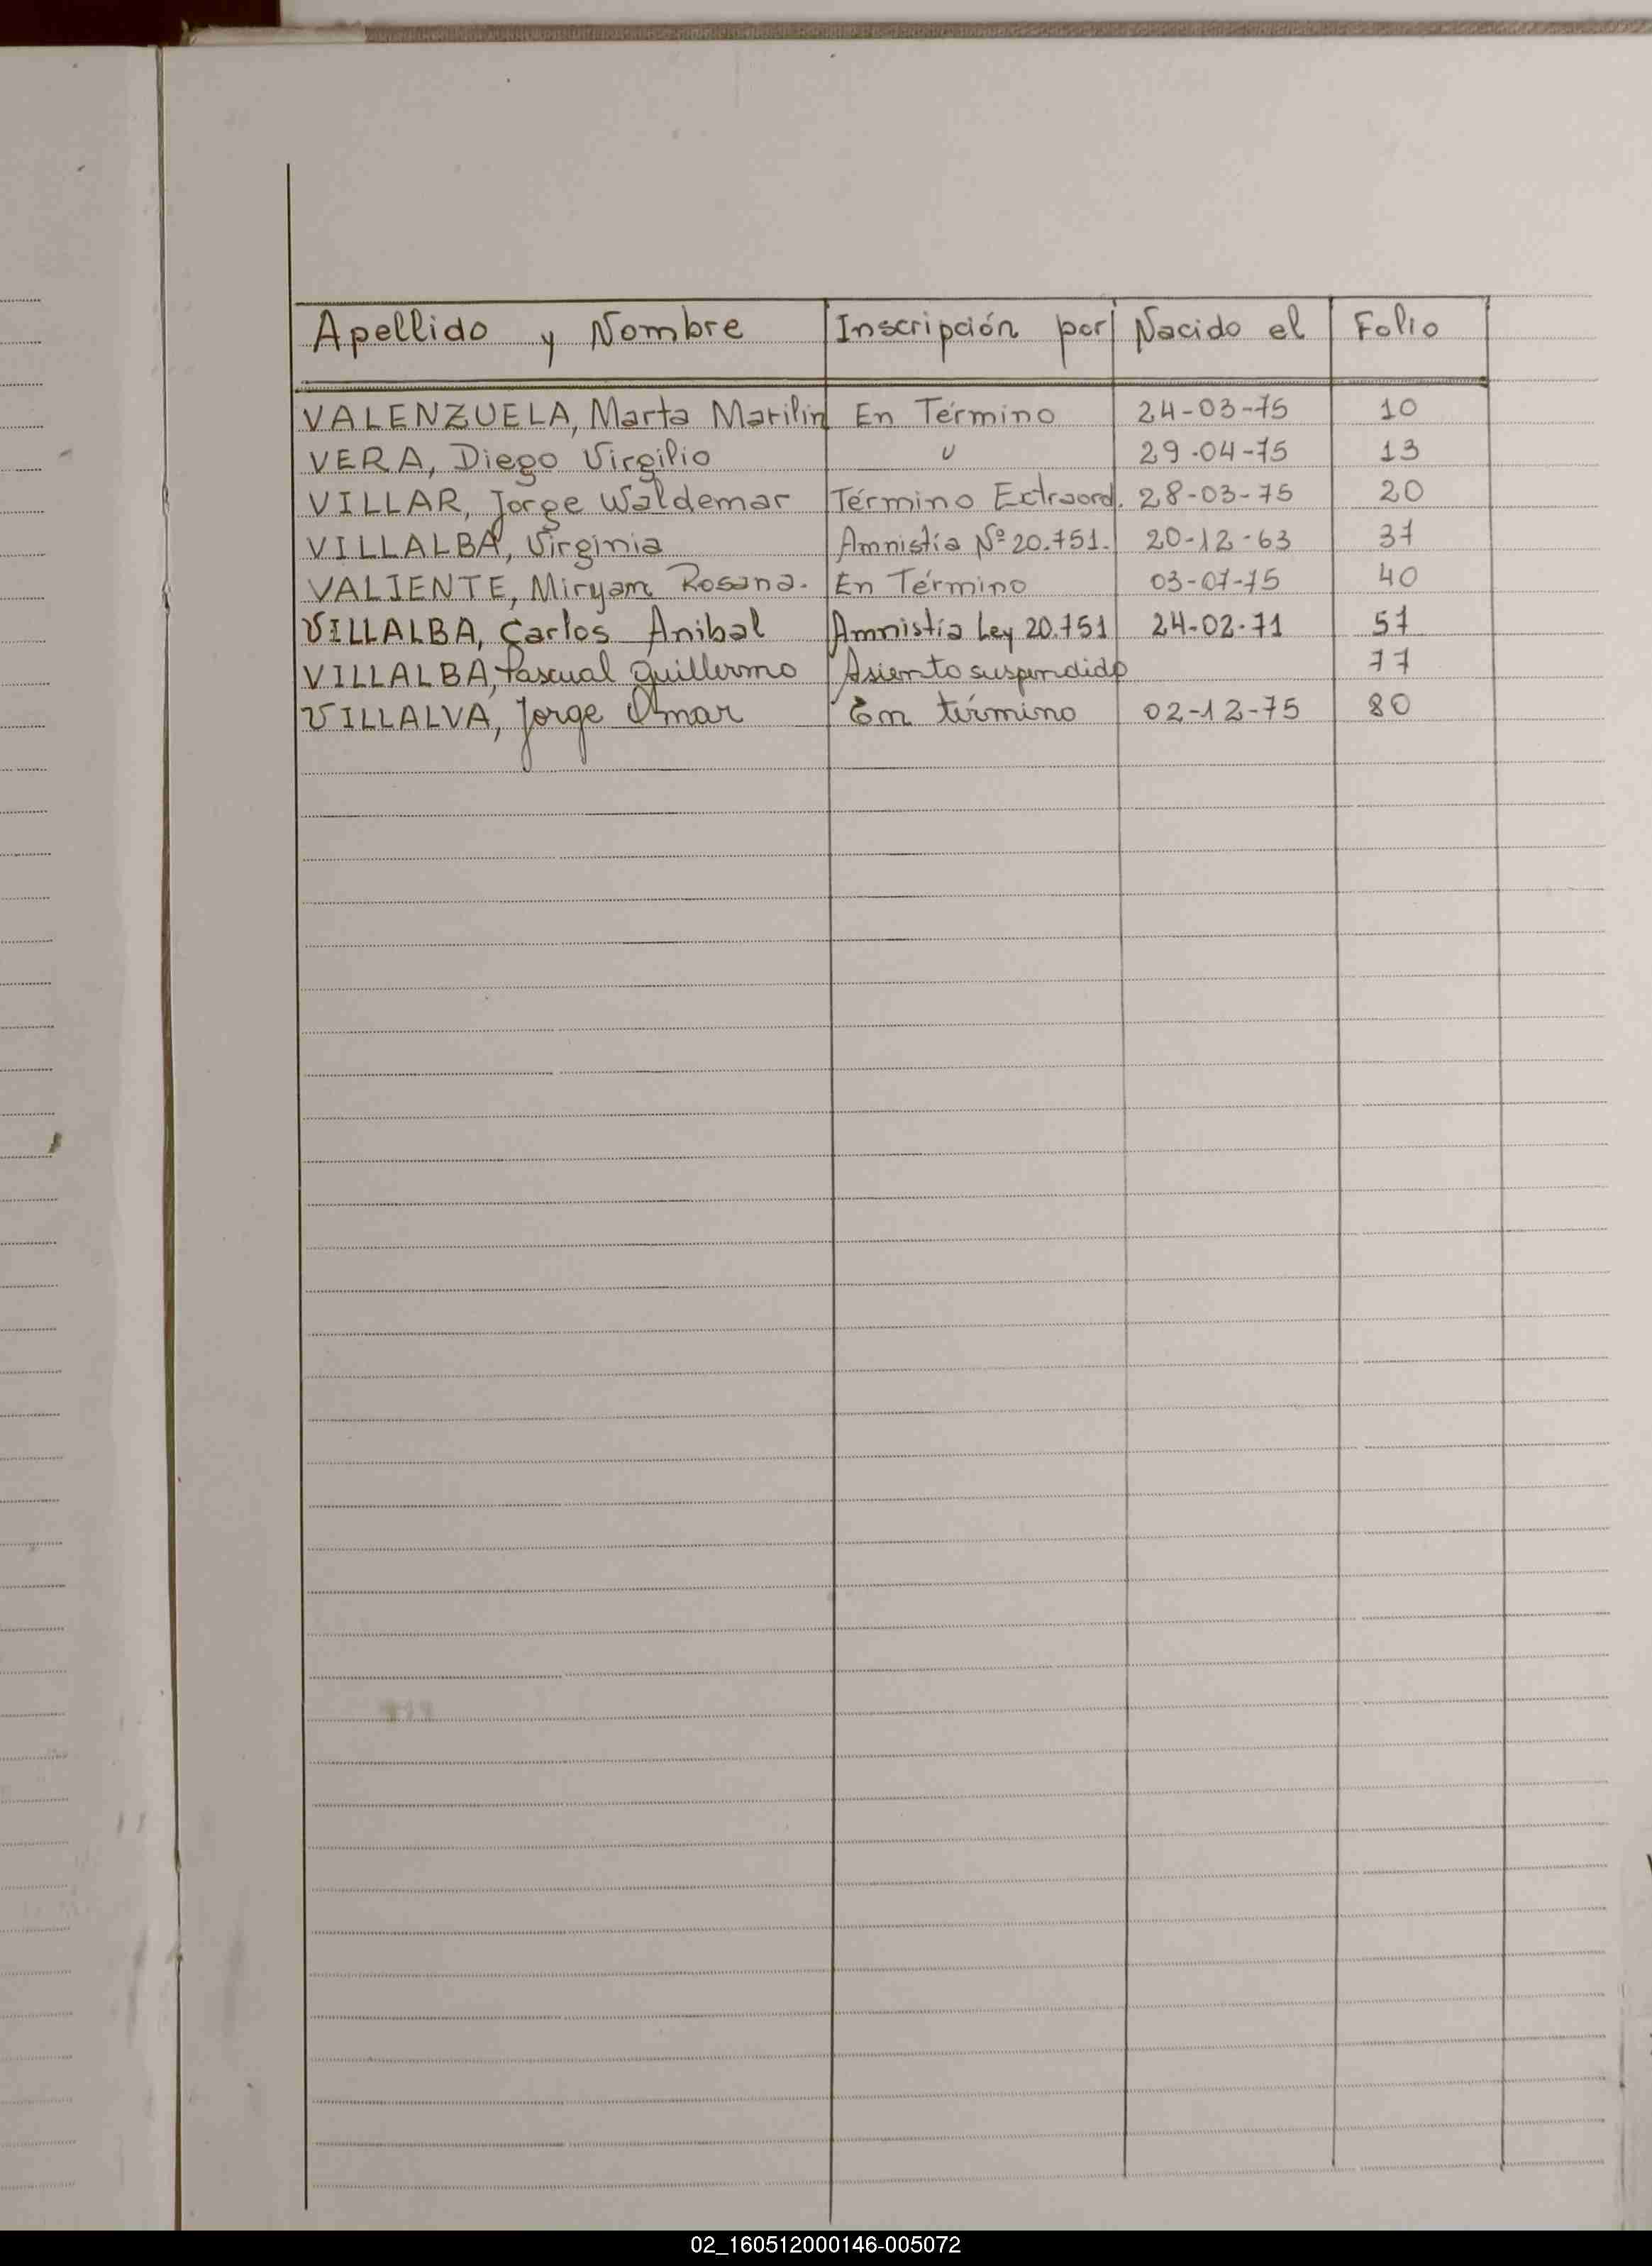 Apellido y Nombre Inscripción por Nacido el Folio
VALENZUELA, Marta Marilin En Término 24-03-75 10
VERA, Diego Virgilio " 29-04-75 13
VILLAR, Jorge Waldemar Término Extraord. 28-03-75 20
VILLALBA, Virginia Amnistía Nº 20.751. 20-12-63 37
VALIENTE, Miryam Rosana. En Término 03-07-75 40
VILLALBA, Carlos Anibal Amnistía Ley 20.751 24-02-71 57
VILLALBA, Pascual Guillermo Asiento suspendido 77
VILLALVA, Jorge Omar En término 02-12-75 80
02_160512000146-005072